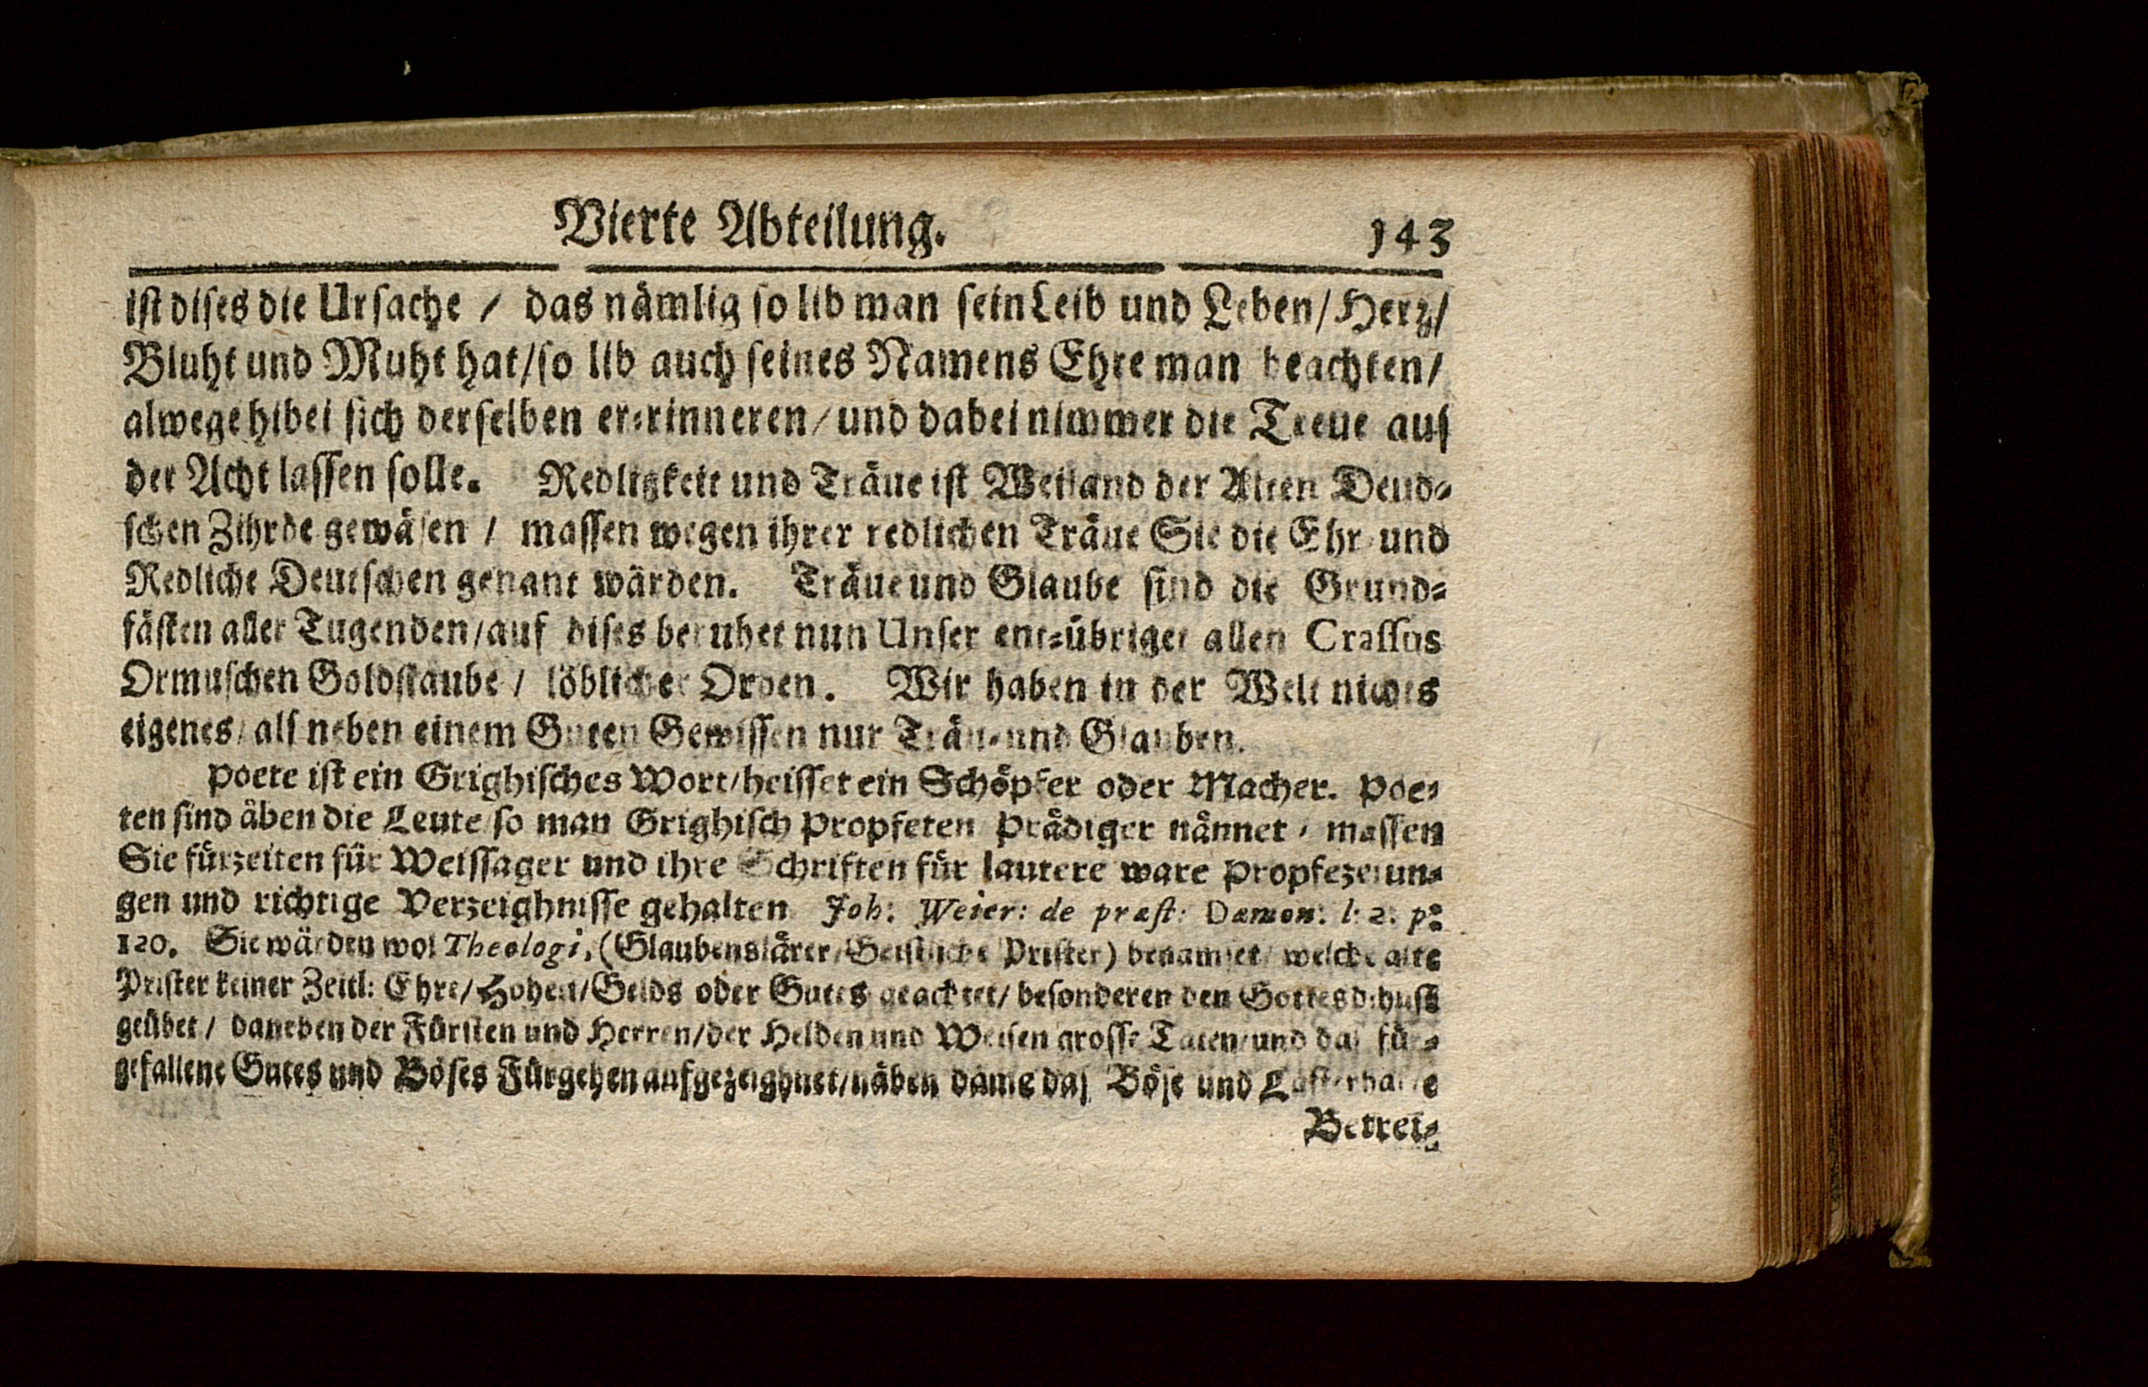 Vierte Abteilung. 143
ist dises die Ursache / das nämlig so lib man sein Leib und Leben / Herz /
Bluht und Muht hat / so lib auch seines Namens Ehre man beachten /
alwege hibei sich derselben er-rinneren / und dabei nimmer die Treue aus
der Acht lassen solle. Redligkeit und Träue ist Weiland der Alten Deud-
schen Zihrde gewäsen / massen wegen ihrer redlichen Träue Sie die Ehr und
Redliche Deutschen genant wärden. Träue und Glaube sind die Grund-
fästen aller Tugenden / auf dises beruhet nun Unser ent-übriget allen Crassus
Ormuschen Goldstaube / löblicher Orden. Wir haben in der Welt nichts
eigenes / als neben einem Guten Gewissen nur Träu- und Glauben.
Poete ist ein Grighisches Wort / heisset ein Schöpfer oder Macher. Poe-
ten sind äben die Leute so man Grighisch Propfeten Prädiger nännet / massen
Sie fürzeiten für Weissager und ihre Schriften für lautere ware Propfezeiun-
gen und richtige Verzeighnisse gehalten Joh: Weier: de præst: Dæmon: l: 2. p:
120. Sie wärden wol Theologi, (Glaubenslärer / Geistliche Prister) benamset / welche alte
Prister keiner Zeitl: Ehre / Hohen / Gelds oder Gutes geachtet / besonderen den Gottesdihnst
geübet / daneben der Fürsten und Herren / der Helden und Weisen grosse Taten / und das für-
gefallene Gutes und Böses Fürgehen aufgezeighnet / näben däme das Böse und Lasterhafte
Betrei-